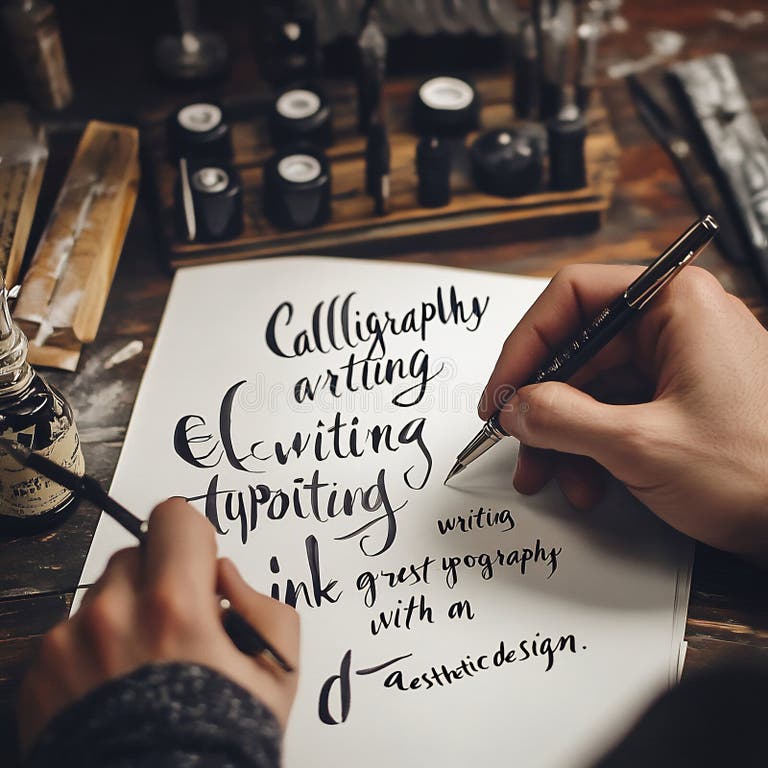 Callligraplhy
artiing
Elcwiting
typoiting
writing
ink grest ypography
with an
d- aesthetic design.
dreamstime